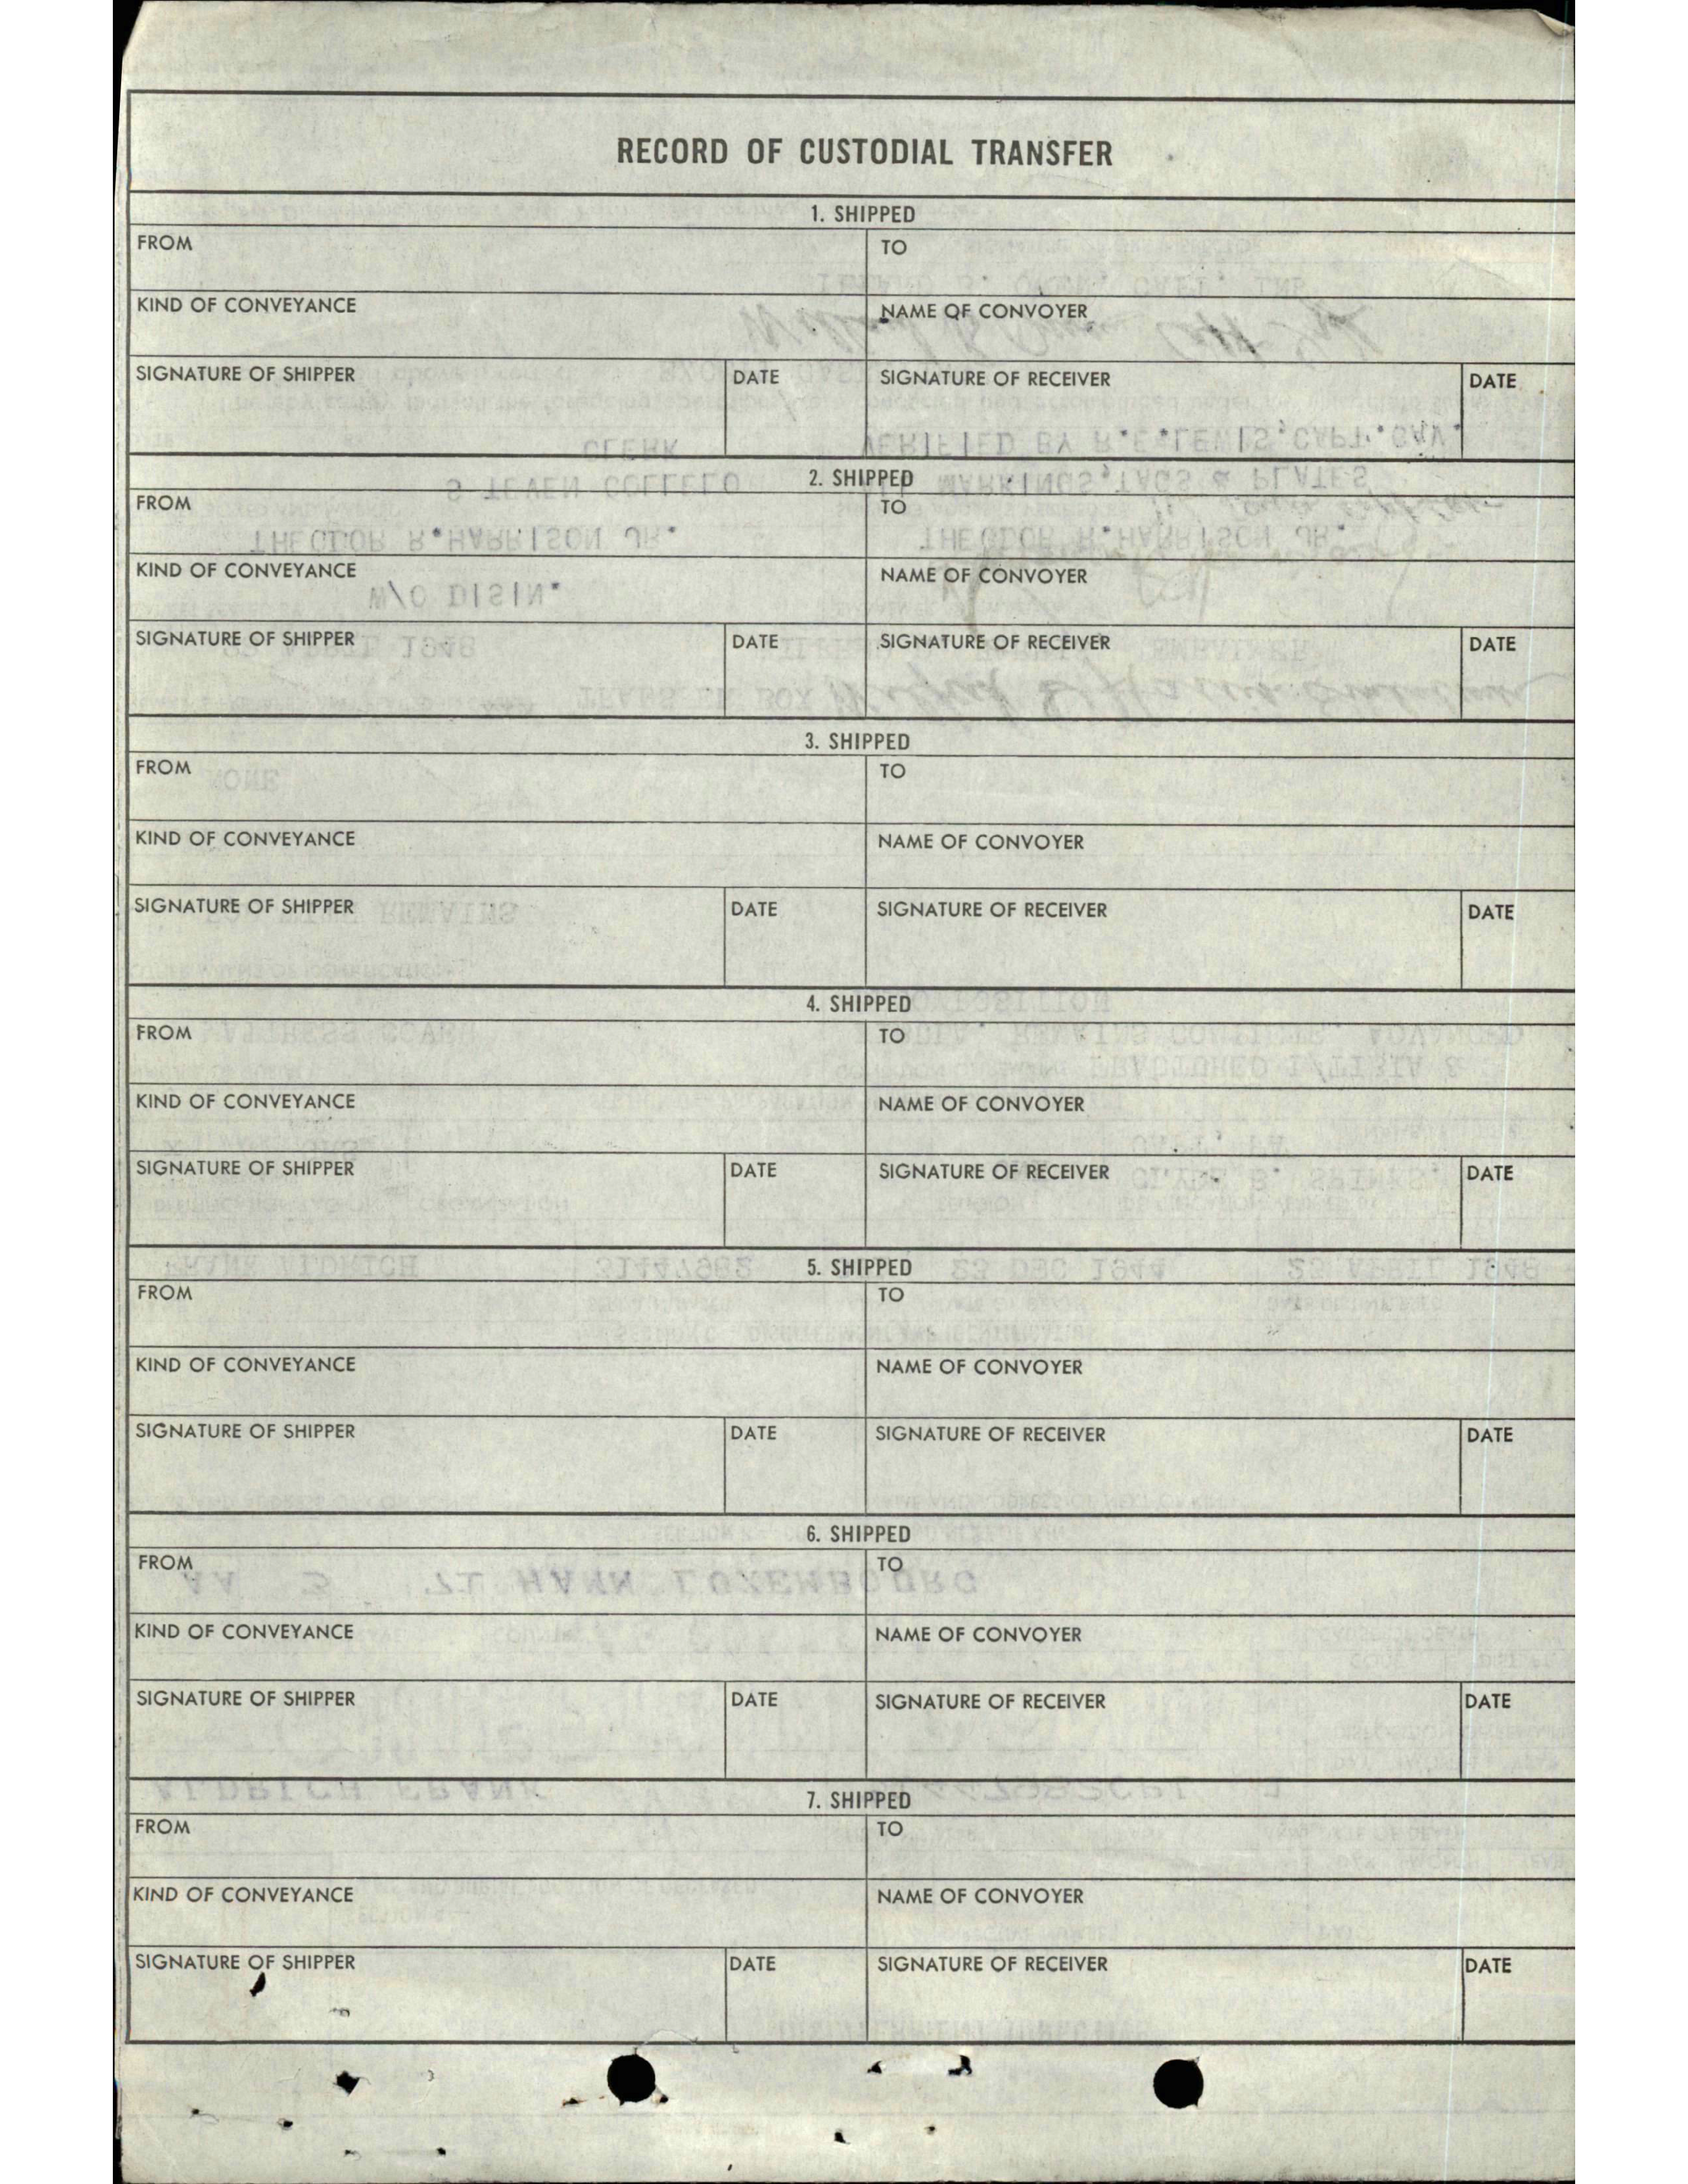 RECORD OF CUSTODIAL TRANSFER
1. SHIPPED
FROM TO
KIND OF CONVEYANCE NAME OF CONVOYER
SIGNATURE OF SHIPPER DATE SIGNATURE OF RECEIVER DATE
2. SHIPPED
FROM TO
KIND OF CONVEYANCE NAME OF CONVOYER
SIGNATURE OF SHIPPER DATE SIGNATURE OF RECEIVER DATE
3. SHIPPED
FROM TO
KIND OF CONVEYANCE NAME OF CONVOYER
SIGNATURE OF SHIPPER DATE SIGNATURE OF RECEIVER DATE
4. SHIPPED
FROM TO
KIND OF CONVEYANCE NAME OF CONVOYER
SIGNATURE OF SHIPPER DATE SIGNATURE OF RECEIVER DATE
5. SHIPPED
FROM TO
KIND OF CONVEYANCE NAME OF CONVOYER
SIGNATURE OF SHIPPER DATE SIGNATURE OF RECEIVER DATE
6. SHIPPED
FROM TO
KIND OF CONVEYANCE NAME OF CONVOYER
SIGNATURE OF SHIPPER DATE SIGNATURE OF RECEIVER DATE
7. SHIPPED
FROM TO
KIND OF CONVEYANCE NAME OF CONVOYER
SIGNATURE OF SHIPPER DATE SIGNATURE OF RECEIVER DATE